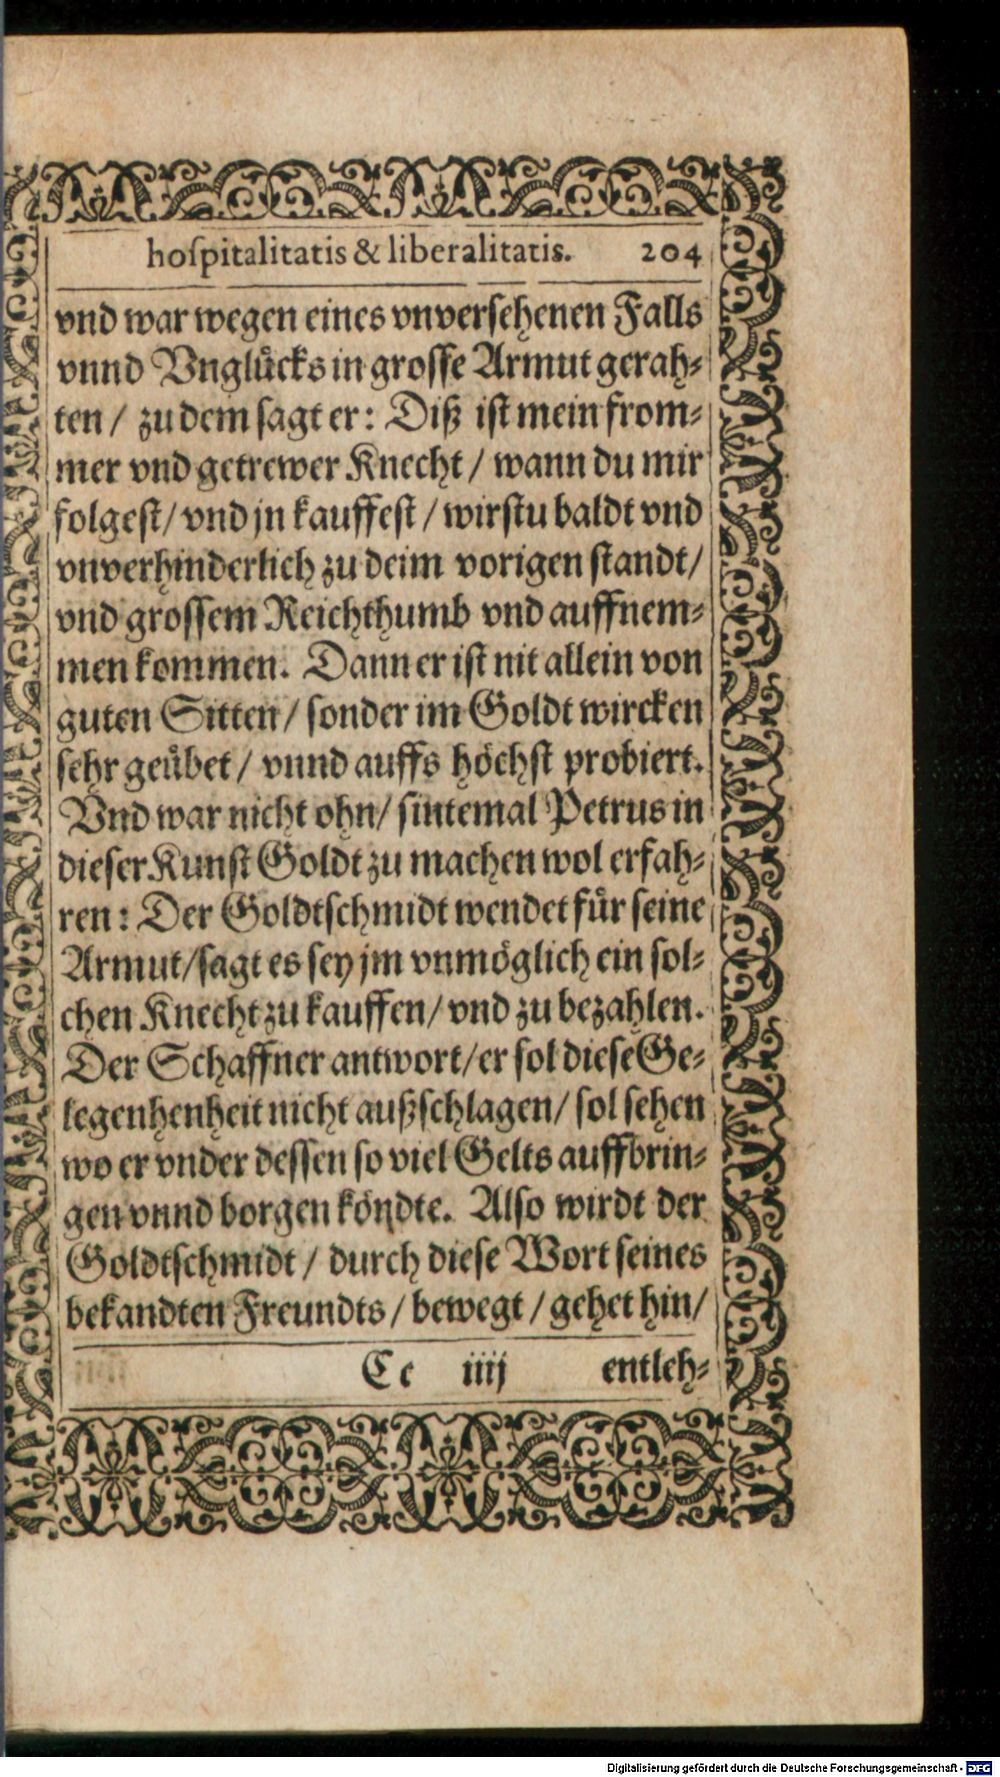 hoſpitalitatis & liberalitatis. 204
vnd war wegen eines vnverſehenen Falls
vnnd Vnglücks in groſſe Armut gerah⸗
ten / zu dem ſagt er: Diß iſt mein from⸗
mer vnd getrewer Knecht / wann du mir
folgeſt / vnd jn kauffeſt / wirſtu baldt vnd
vnverhinderlich zu deim vorigen ſtandt /
vnd groſſem Reichthumb vnd auffnem⸗
men kommen. Dann er iſt nit allein von
guten Sitten / ſonder im Goldt wircken
ſehr geübet / vnnd auffs höchſt probiert.
Vnd war nicht ohn / ſintemal Petrus in
dieſer Kunſt Goldt zu machen wol erfah⸗
ren: Der Goldtſchmidt wendet für ſeine
Armut / ſagt es ſey jm vnmöglich ein ſol⸗
chen Knecht zu kauffen / vnd zu bezahlen.
Der Schaffner antwort / er ſol dieſe Ge⸗
legenhenheit nicht außſchlagen / ſol ſehen
wo er vnder deſſen ſo viel Gelts auffbrin⸗
gen vnnd borgen köndte. Alſo wirdt der
Goldtſchmidt / durch dieſe Wort ſeines
bekandten Freundts / bewegt / gehet hin /
Cc iiij entleh⸗
Digitalisierung gefördert durch die Deutsche Forschungsgemeinschaft - DFG